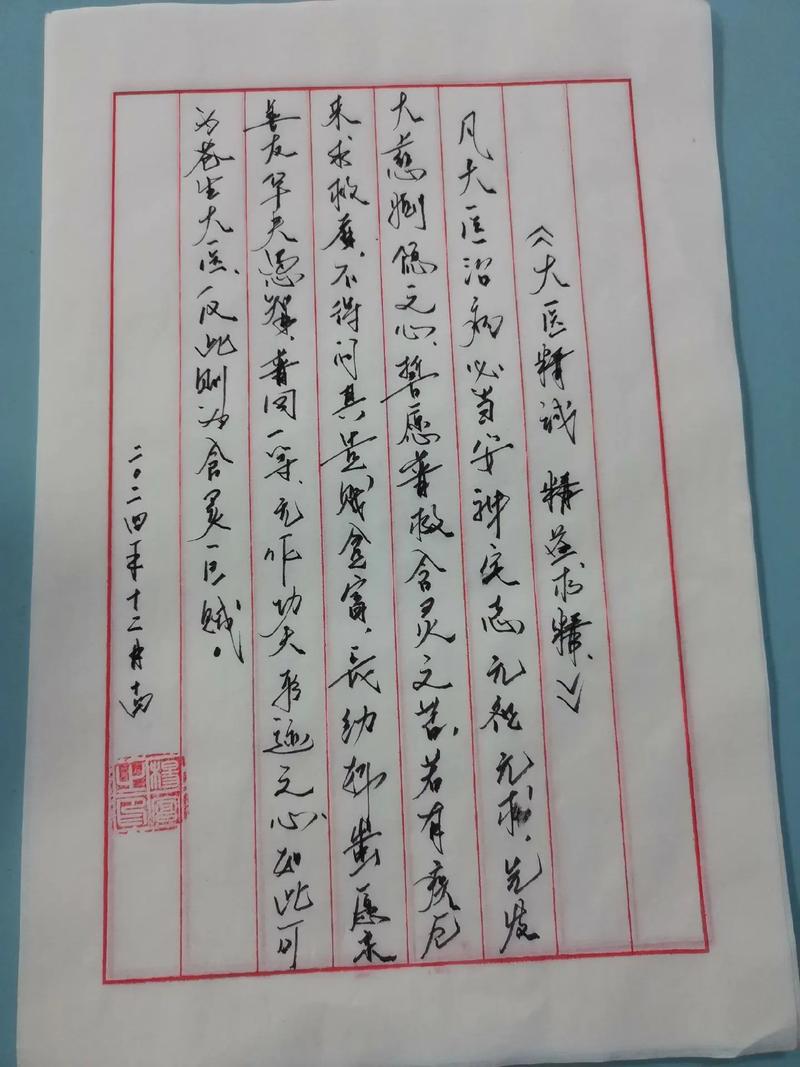 《大医精诚 精益求精、》
凡大医治病必当安神定志无欲无求、先发
大慈恻隐之心、誓愿普救含灵之苦、若有疾厄
来求救者、不得问其贵贱贫富、长幼妍蚩
善友华夷愚智、普同一等、无作功夫形迹之心如此可
为苍生大医、反此则为含灵巨贼。
二〇二四年十二月